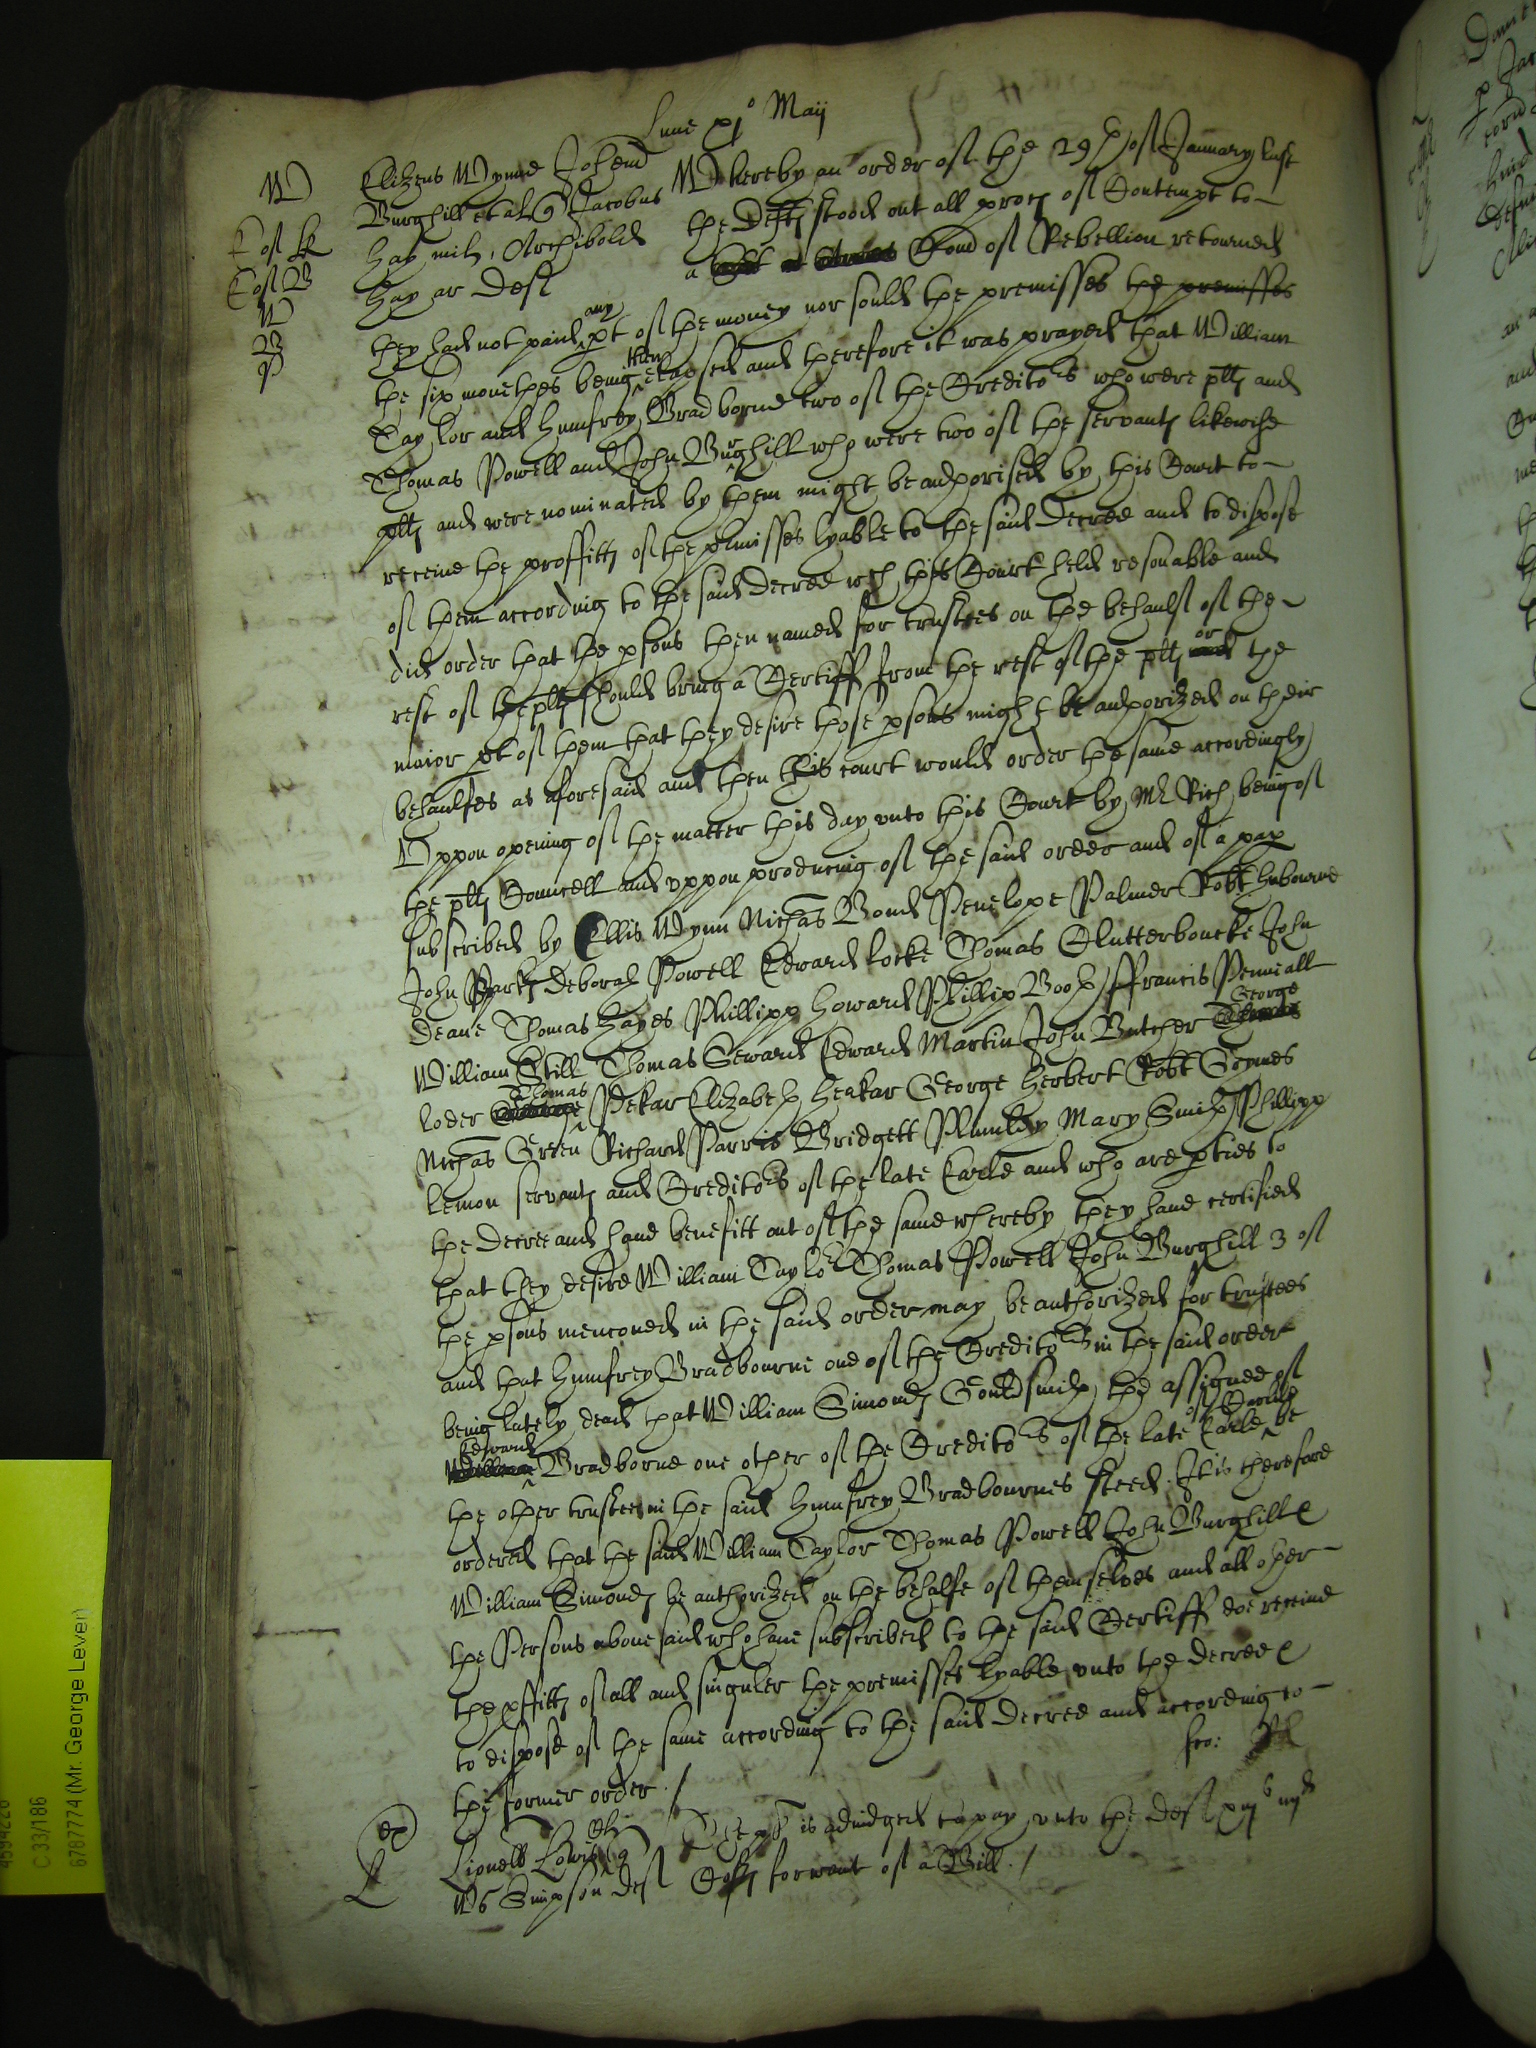 Lune xjo Maij
W
E of K
E of B
W
B
P
Elizeus Wynne Johem
Burghill et al Jacobus
Hay mil, Archibold
Hay ar Deft
Whereby an order of the 29th of January last
the Defts stood out all proces of Contempt to
a Com of Rebellion retourned
they had not paid any pt of the money nor sould the premisses the premisses
the six monethes being then elapsed and therefore it was prayed that William
Taylor and Humfrey Bradborne two of the Creditors who were plts and
Thomas Powell and John Burghill who were two of the servants likewise
plts and were nominated by them might be authorised by this Court to
receive the proffitts of the premisses lyable to the said Decree and to dispose
of them according to the said Decree wch this Court held resonable and
did order that the psons then named for trustees on the behaulf of the
rest of the plts should bring a Certiff from the rest of the plts or the
maior pt of them that they desire those psons might be authorized on their
behaulfes as aforesaid and then this court would order the same accordingly
Uppon opening of the matter this day unto this Court by Mr Rich being of
the plts Councell and uppon producing of the said order and of a pap
subscribed by Ellis Wynn Nichas Bond Penelope Palmer Robt Hubourne
John Parks Deborah Powell Edward Locke Thomas Clutterboucke John
Deane Thomas Hayes Phillipp Howard Phillip Booth Francis Penniall
William Still Thomas Seward Edward Martin John Butcher George
Loder Thomas Pekar Elizabeth Heakar George Herbert Robt Soynes
Nichas Green Richard Parris Bridgett Plumley Mary Smith Phillipp
Lemon servants and Creditors of the late Earle and who are pties to
the Decree and have benefitt out of the same whereby they have certified
that they desire William Taylor Thomas Powell John Burghill 3 of
the psons menconed in the said order may be authorized for trustees
and that Humfrey Bradbourne one of the Creditors in the said order
being lately dead that William Simonds Gouldsmith the assignee of
Edward Bradborne one other of the Creditors of the late Earle be
the other trustee in the said Humfrey Bradbournes steed. It is therefore
ordered that the said William Taylor Thomas Powell John Burghill &
William Simonds be authorized on the behalfe of themselves and all other
the Persons abovesaid who have subscribed to the said Certiff doe receive
the pffitts of all and singuler the premisses lyable unto the decree &
to dispose of the same according to the said decree and according to
the former order./
L
Lionell Lowis
Simpson Deft
The plt is adiudged to pay unto the Deft xiijs iiijd
Costs for want of a Bill./
C 33/186
6787774 (Mr. George Lever)